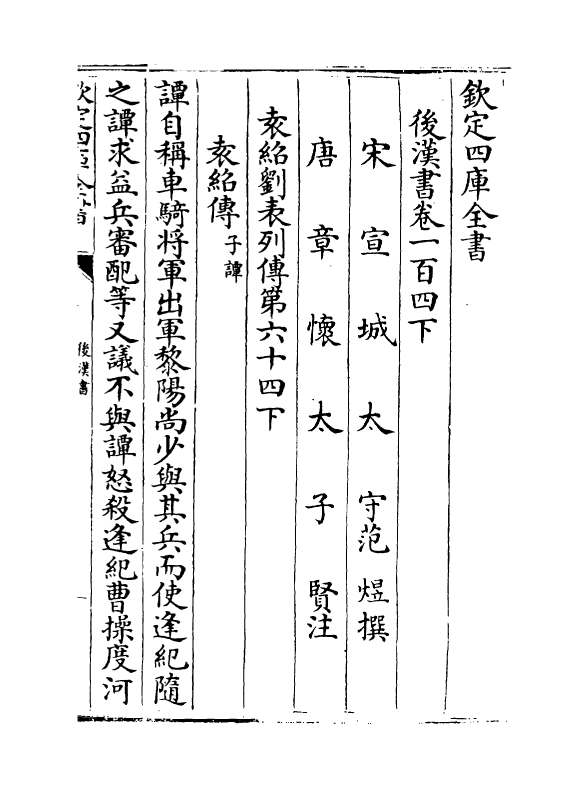 欽定四庫全書
後漢書卷一百四下
宋宣城太守范煜撰
唐章懷太子賢注
袁紹劉表列傳第六十四下
袁紹傳 子譚
譚自稱車騎將軍出軍黎陽尚少與其兵而使逢紀隨
之譚求益兵審配等又議不與譚怒殺逢紀曹操度河
欽定四庫全書
後漢書
一